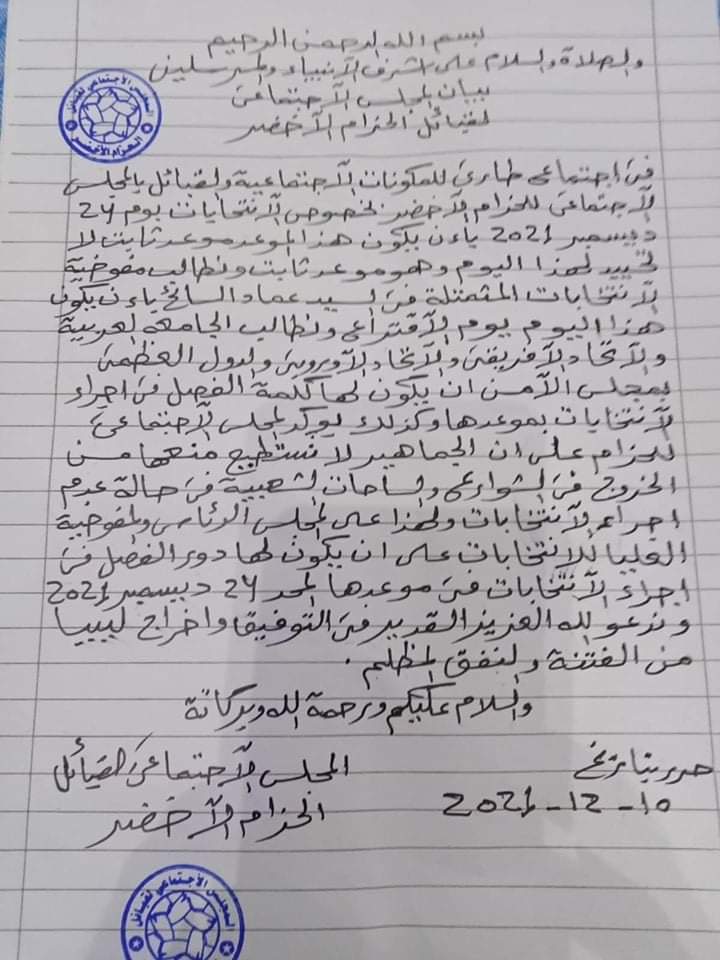 بسم الله الرحمن الرحيم
والصلاة والسلام على اشرف الأنبياء والمرسلين
بيان المجلس الآجتماعى
لقبائل الحزام الآخضر
المجلس الاجتماعي لقبائل
الحزام الأخضر
فى اجتماعى طارئ للمكونات الآجتماعية ولقبائل بالمجلس
الآجتماعى للحزام الآخضر بخصوص الآنتخابات يوم 24
ديسمبر 2021 بأن يكون هذا الموعد موعد ثابت لا
تحييد لهذا اليوم وهو موعد ثابت ونطالب مفوضية
الآنتخابات المتمثلة فى السيد عماد السائح بأن يكون
هذا اليوم يوم الآقتراعى ونطالب الجامعه العربية
والآتحاد الآفريقى والآتحاد الآوروبى والدول العظمى
بمجلس الآمن ان يكون لها كلمة الفصل فى اجراء
لآنتخابات بموعدها وكذلك يوكد المجلس الآجتماعى
للحزام على ان الجماهير لا نستطيع منعها من
الخروج فى الشوارعى والساحات الشعبية فى حالة عدم
اجراء الآنتخابات ولهذا على المجلس الرئاسى والمفوضية
العليا للانتخابات على ان يكون لها دور الفصل فى
اجراء الآنتخابات فى موعدها المحدد 24 ديسمبر 2021
وندعو لله العزيز القدير فى التوفيق واخراج ليبيا
من الفتنة والنفق المظلم .
والسلام عليكم ورحمة الله وبركاتة
حرر بتاريخ
10-12-2021
المجلس الآجتماعى القبائل
الحزام الآخضر
المجلس الاجتماعي لقبائل